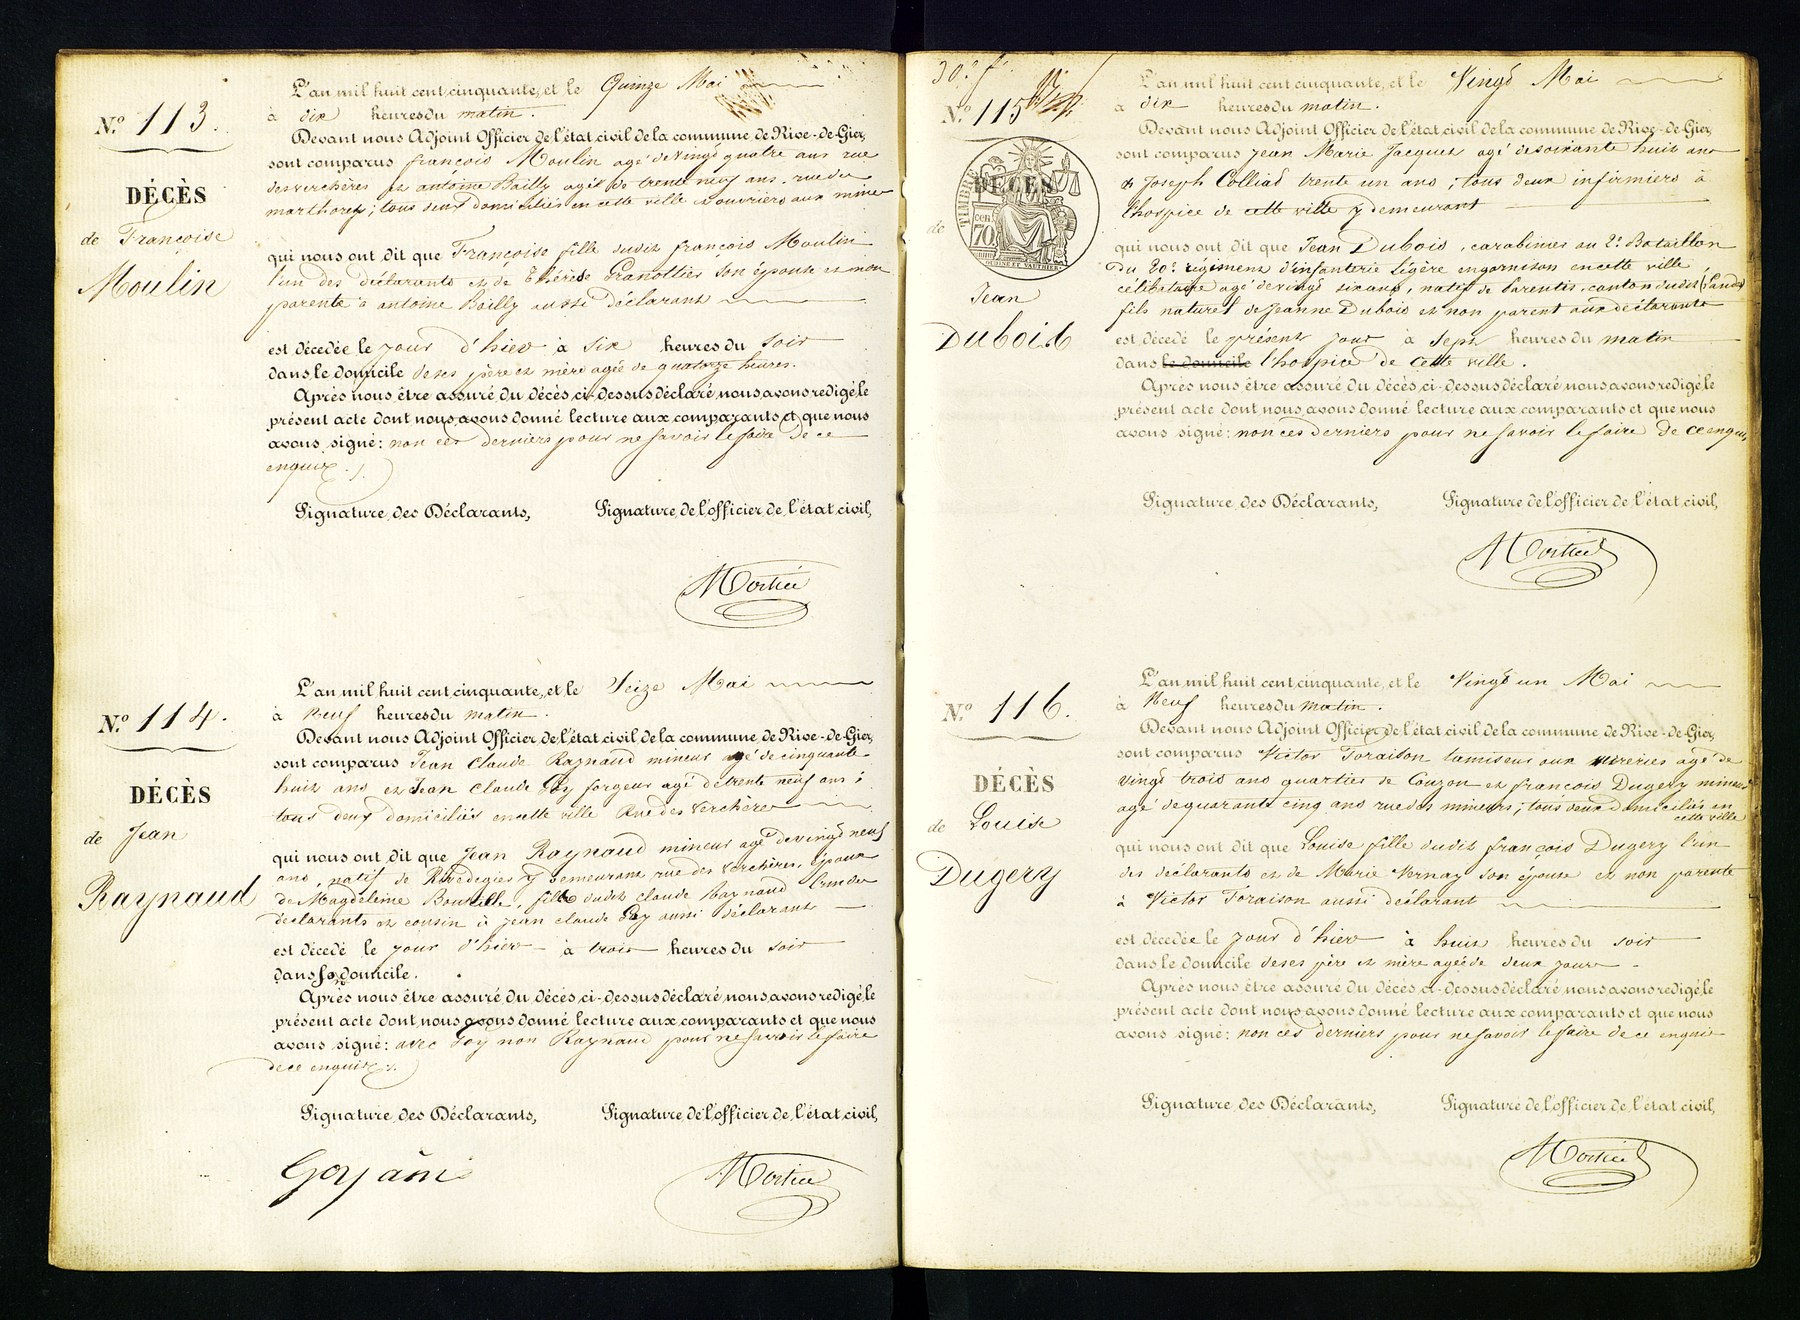 N.º 113.
DÉCÈS
de Françoise
Moulin
L'an mil huit cent cinquante, et le Quinze Mai
à dix heures du matin.
Devant nous Adjoint Officier de l'état civil de la commune de Rive-de-Gier,
sont comparus françois Moulin agé de vingt quatre ans rue
des verchères et antoine Bailly agé de trente neuf ans, rue du
marthoret; tous deux domiciliés en cette ville et ouvriers aux mines
qui nous ont dit que Françoise fille dudit françois Moulin
l'un des déclarants et de Thérèse Granottier son épouse et non
parente à antoine Bailly aussi déclarant
est décedée le jour d'hier à six heures du soir
dans le domicile de ses père et mère agée de quatorze heures.
Après nous être assuré du décès, ci-dessus déclaré, nous avons redigé, le
présent acte dont nous avons donné lecture aux comparants et que nous
avons signé: non ces derniers pour ne savoir le faire de ce
enquis.
Signature des Déclarants, Signature de l'officier de l'état civil,
N.º 114.
DÉCÈS
de Jean
Raynaud
L'an mil huit cent cinquante, et le Seize Mai
à Neuf heures du matin.
Devant nous Adjoint Officier de l'état civil de la commune de Rive-de-Gier,
sont comparus Jean Claude Raynaud mineur agé de cinquante
huit ans et Jean Claude forgeur agé de trente neuf ans;
tous deux domiciliés en cette ville Rue des Verchères
qui nous ont dit que Jean Raynaud mineur agé de vingt neuf
ans, natif de Rivedegier y demeurant rue des Verchères, Epoux
de Magdeleine, fils dudit claude Raynaud l'un des
déclarants et cousin à jean claude aussi déclarant
est décedé le jour d'hier à trois heures du soir
dans son domicile.
Après nous être assuré du décès, ci-dessus déclaré, nous avons redigé, le
présent acte dont nous avons donné lecture aux comparants et que nous
avons signé: avec non Raynaud pour ne savoir le faire
de ce enquis.
Signature des Déclarants, Signature de l'officier de l'état civil,
N.º 115
TIMBRE
DÉCÈS
cen. 70
OUDINÉ ET VAUTHIER
de
Jean
Dubois
L'an mil huit cent cinquante, et le Vingt Mai
à dix heures du matin.
Devant nous Adjoint Officier de l'état civil de la commune de Rive-de-Gier,
sont comparus Jean Marie Jacquet agé de soixante huit ans
& Joseph Colliad trente un ans; tous deux infirmiers à
l'hospice de cette ville y demeurant
qui nous ont dit que Jean Dubois, carabinier au 2e Bataillon
du 20e régiment d'infanterie Légère en garnison en cette ville
célibataire agé de vingt six ans, natif de Parentis, canton dudit (Landes)
fils naturel de Jeanne Dubois et non parent aux déclarants
est décedé le présent jour à Sept heures du matin
dans le domicile l'hospice de cette ville.
Après nous être assuré du décès, ci-dessus déclaré, nous avons redigé, le
présent acte dont nous avons donné lecture aux comparants et que nous
avons signé: non ces derniers pour ne savoir le faire de ce enquis
Signature des Déclarants, Signature de l'officier de l'état civil,
N.º 116.
DÉCÈS
de Louise
Dugery
L'an mil huit cent cinquante, et le Vingt un Mai
à Neuf heures du matin.
Devant nous Adjoint Officier de l'état civil de la commune de Rive-de-Gier,
sont comparus Victor Foraison tamiseur aux verreries agé de
vingt trois ans quartier de Couzon et françois Dugery mineur
agé de quarante cinq ans rue des mineurs; tous deux domiciliés en
cette ville
qui nous ont dit que Louise fille dudit françois Dugery l'un
des déclarants et de Marie Vernay son épouse et non parente
à Victor Foraison aussi déclarant
est décedée le jour d'hier à huit heures du soir
dans le domicile de ses père et mère agée de deux jours.
Après nous être assuré du décès, ci-dessus déclaré, nous avons redigé, le
présent acte dont nous avons donné lecture aux comparants et que nous
avons signé: non ces derniers pour ne savoir le faire de ce enquis
Signature des Déclarants, Signature de l'officier de l'état civil,